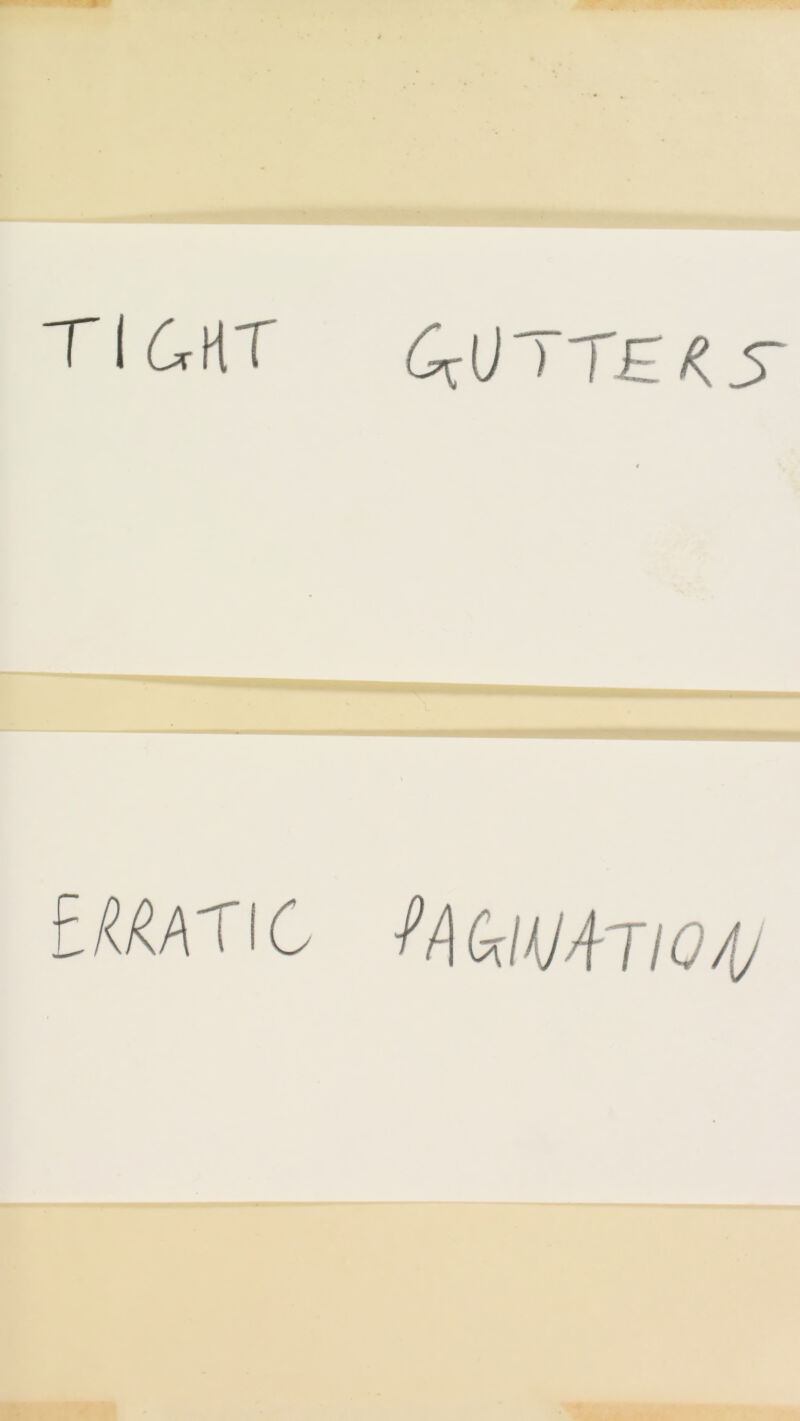 TIGHT GUTTERS
ERRATIC PAGINATION